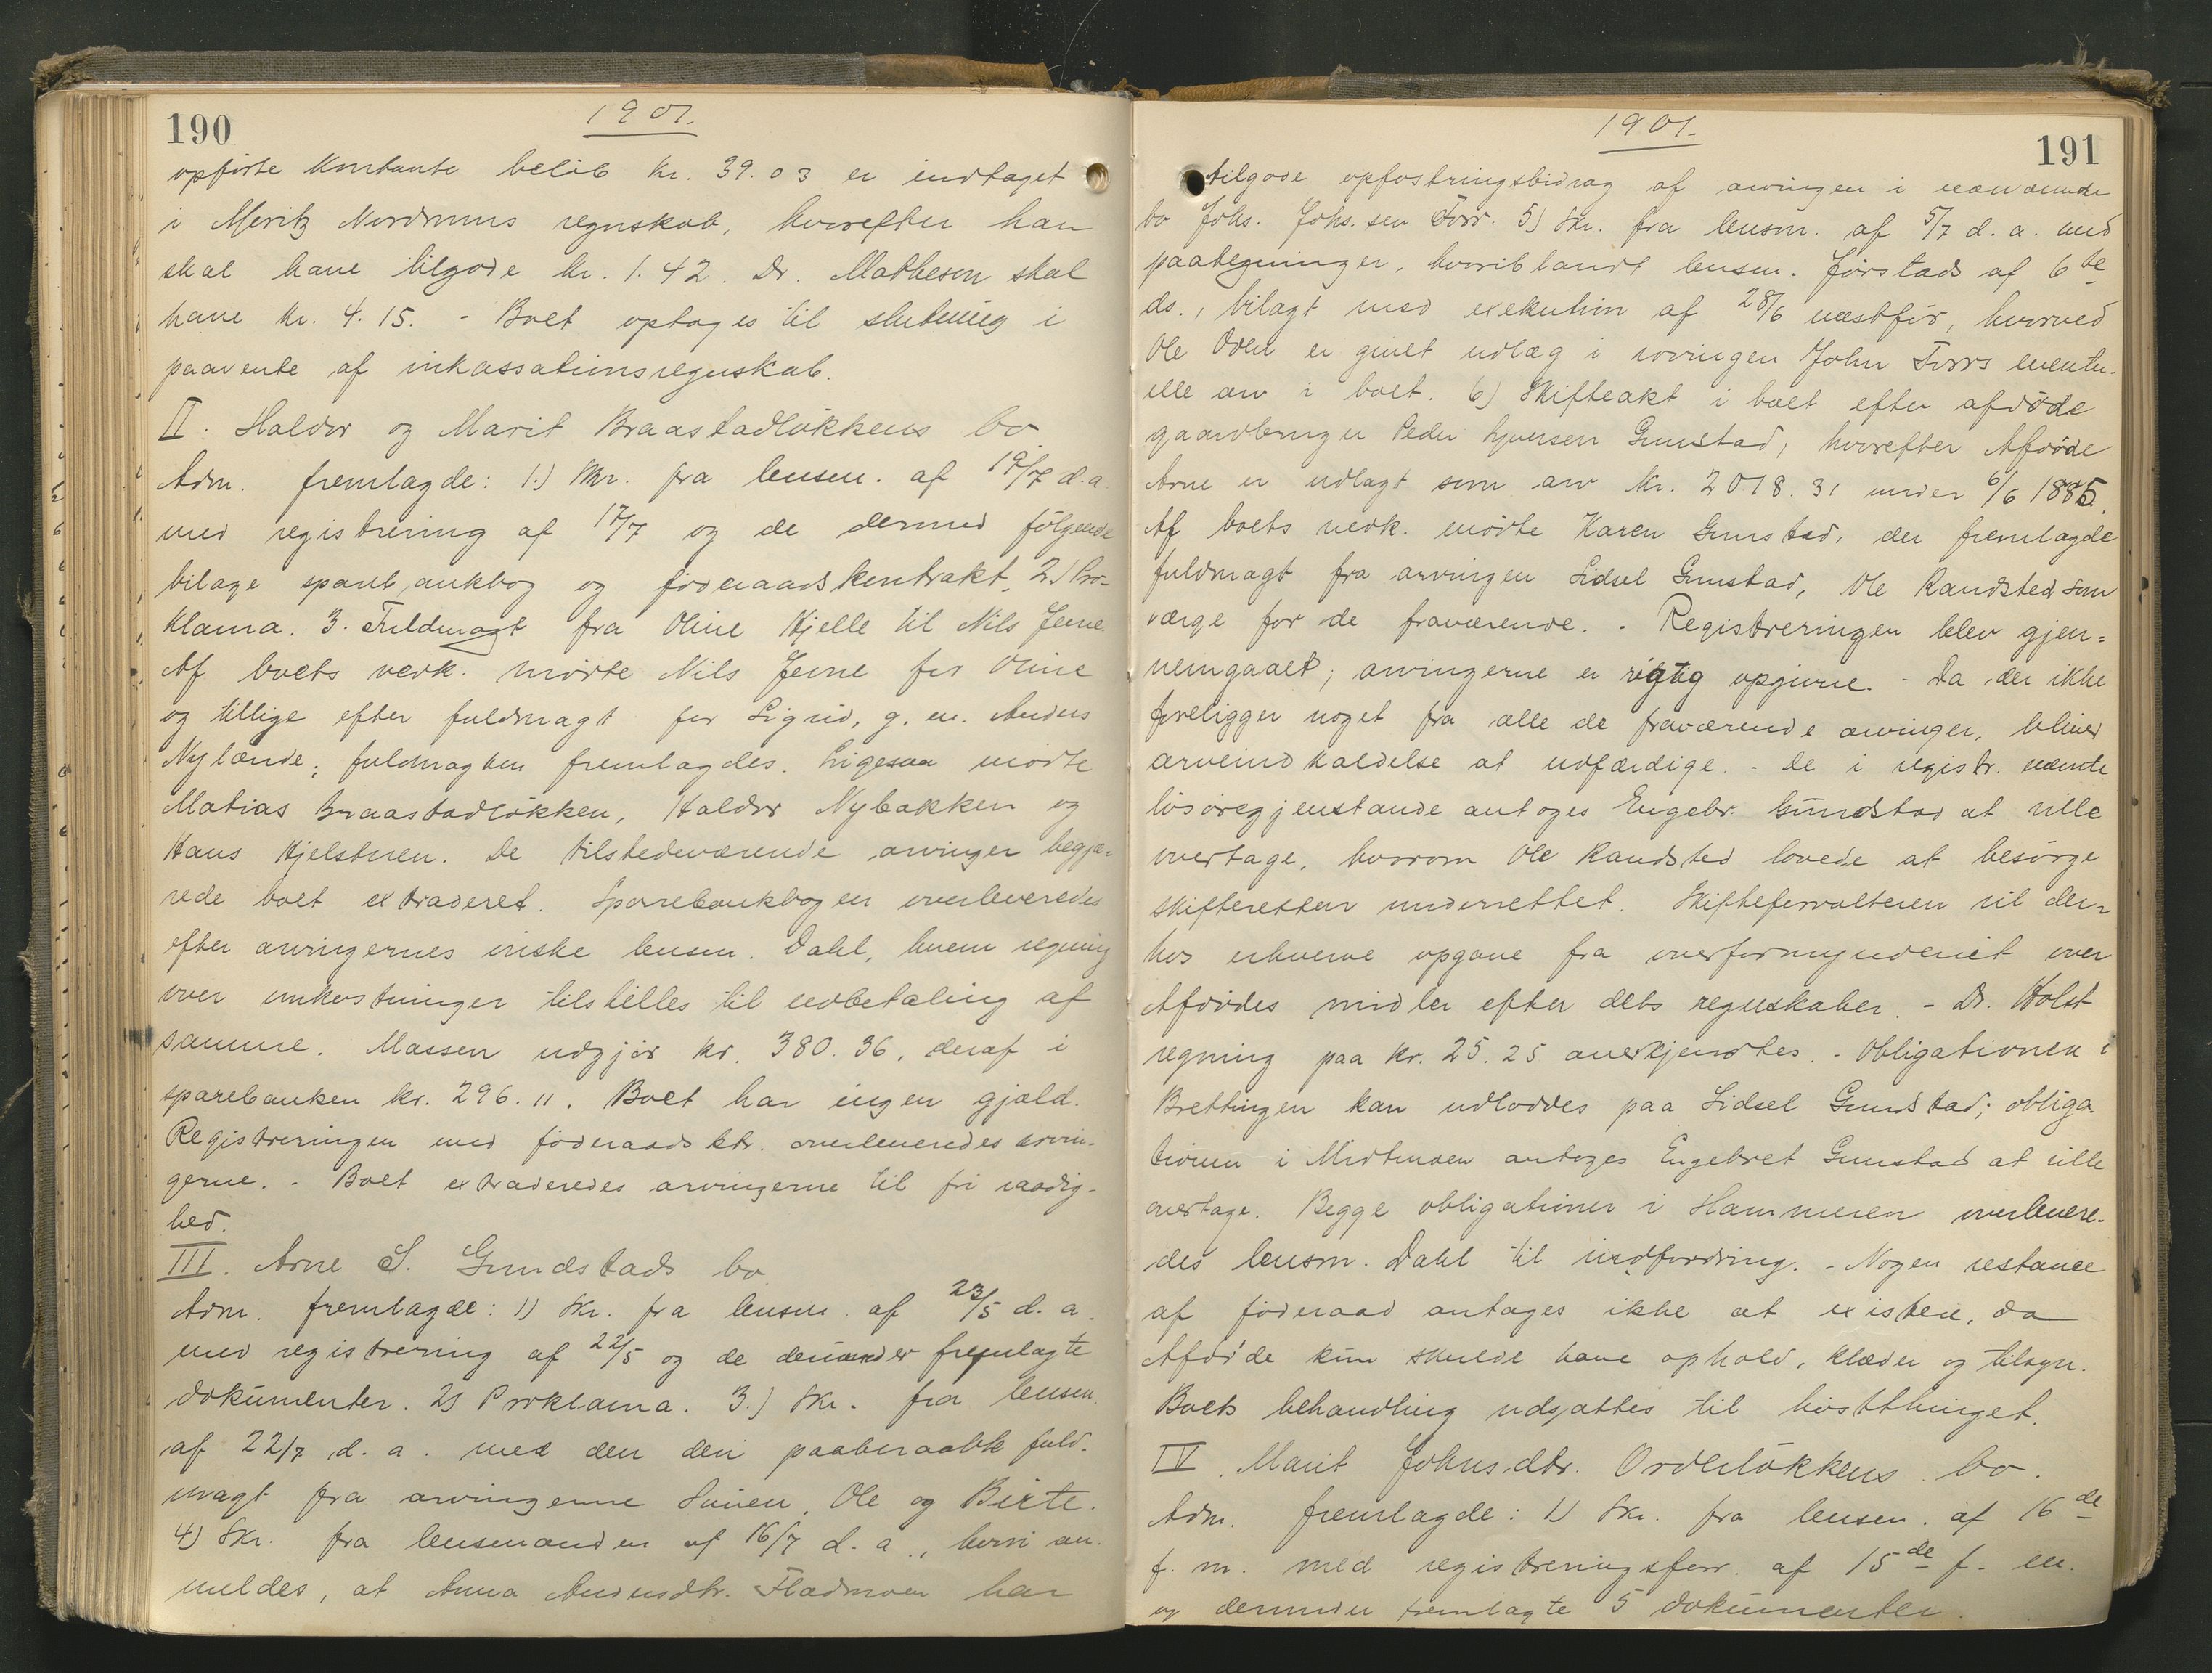 190
1901.
opførte kontante beløb kr. 39.03 er indtaget
i Moritz Nordrums regnskab, hvorefter han
skal have tilgode kr. 1.42. Dr. Matheson skal
have kr. 4.15. - Boet optoges til slutning i
paavente af inkassationsregnskab.
II. Haldor og Marit Braastadløkkens bo.
Adm. fremlagde: 1.) Skr. fra lensm. af 19/7 d.a.
med registrering af 17/7 og de dermed følgende
bilage sparebankbog og føderaadskontrakt. 2.) Pro-
klama. 3. Fuldmagt fra Oline Kjelle til Nils Jevne.
Af boets vedk. mødte Nils Jevne for Oline
og tillige efter fuldmagt for Sigrid, g. m. Anders
Nylænde; fuldmagten fremlagdes. Ligesaa mødte
Matias Braastadløkken, Haldor Nybakken og
Hans Kjelstuen. De tilstedeværende arvinger begjæ-
rede boet extraderet. Sparebankbogen overleveredes
efter arvingernes ønske lensm. Dahl, hvem regning
over omkostninger tilstilles til udbetaling af
samme. Massen udgjør kr. 380.36, deraf i
sparebanken kr. 296.11. Boet har ingen gjæld.
Registreringen med føderaadsktr. overleveredes arvin-
gerne. - Boet extraderedes arvingerne til fri raadig-
hed.
III. Arne S. Gundstads bo.
Adm. fremlagde: 1) Skr. fra lensm. af 23/5 d. a.
med registrering af 22/5 og de derunder fremlagte
dokumenter. 2) Proklama. 3.) Skr. fra lensm.
af 22/7 d. a. med den deri paaberaabte fuld-
magt fra arvingerne Simen, Ole og Birte.
4) Skr. fra lensmanden af 16/7 d. a., hvori an-
meldes, at Anna Andersdtr. Fladmoen har
1901.
191
tilgode opfostringsbidrag af arvingen i nærværende
bo Johs. Johs.sen Torr. 5) Skr. fra lensm. af 5/7 d. a. med
paategninger, hvoriblandt lensm. Jørstads af 6te
ds., bilagt med exekution af 28/6 næstfør, hvorved
Ole Oden er givet udlæg i arvingen John Torrs eventu-
elle arv i boet. 6) Skifteakt i boet efter afdøde
gaardbruger Peder Syversen Gunstad, hvorefter Afdøde
Arne er udlagt som arv kr. 2018.31 under 6/6 1885.
Af boets vedk. mødte Karen Gunstad, der fremlagde
fuldmagt fra arvingen Sidsel Gunstad, Ole Randsted som
værge for de fraværende. - Registreringen blev gjen-
nemgaaet; arvingerne er rigtig opgivne. - Da der ikke
foreligger noget fra alle de fraværende arvinger, bliver
arveindkaldelse at udfærdige. - De i registr. nævnte
løsøregjenstande antoges Engebr. Gundstad at ville
overtage, hvorom Ole Randsted lovede at besørge
skifteretten underrettet. Skifteforvalteren vil der-
hos erhverve opgave fra overformynderiet over
Afdødes midler efter dets regnskaber. - Dr. Holst
regning paa kr. 25.25 anerkjendtes. - Obligationen i
Brettingen kan udloddes paa Sidsel Gundstad; obliga-
tionen i Midtmoen antoges Engebret Gunstad at ville
overtage. Begge obligationer i Hammeren overlevere-
des lensm. Dahl til indfordring. - Nogen restance
af føderaad antages ikke at existere, da
Afdøde kun skulde have ophold, klæder og tilsyn.
Boets behandling udsattes til høstthinget.
IV. Marit Johnsdtr. Odenløkkens bo.
Adm. fremlagde: 1) Skr. fra lensm. af 16de
f. m. med registreringsforr. af 15de f. m.
og derunder fremlagte 5 dokumenter.